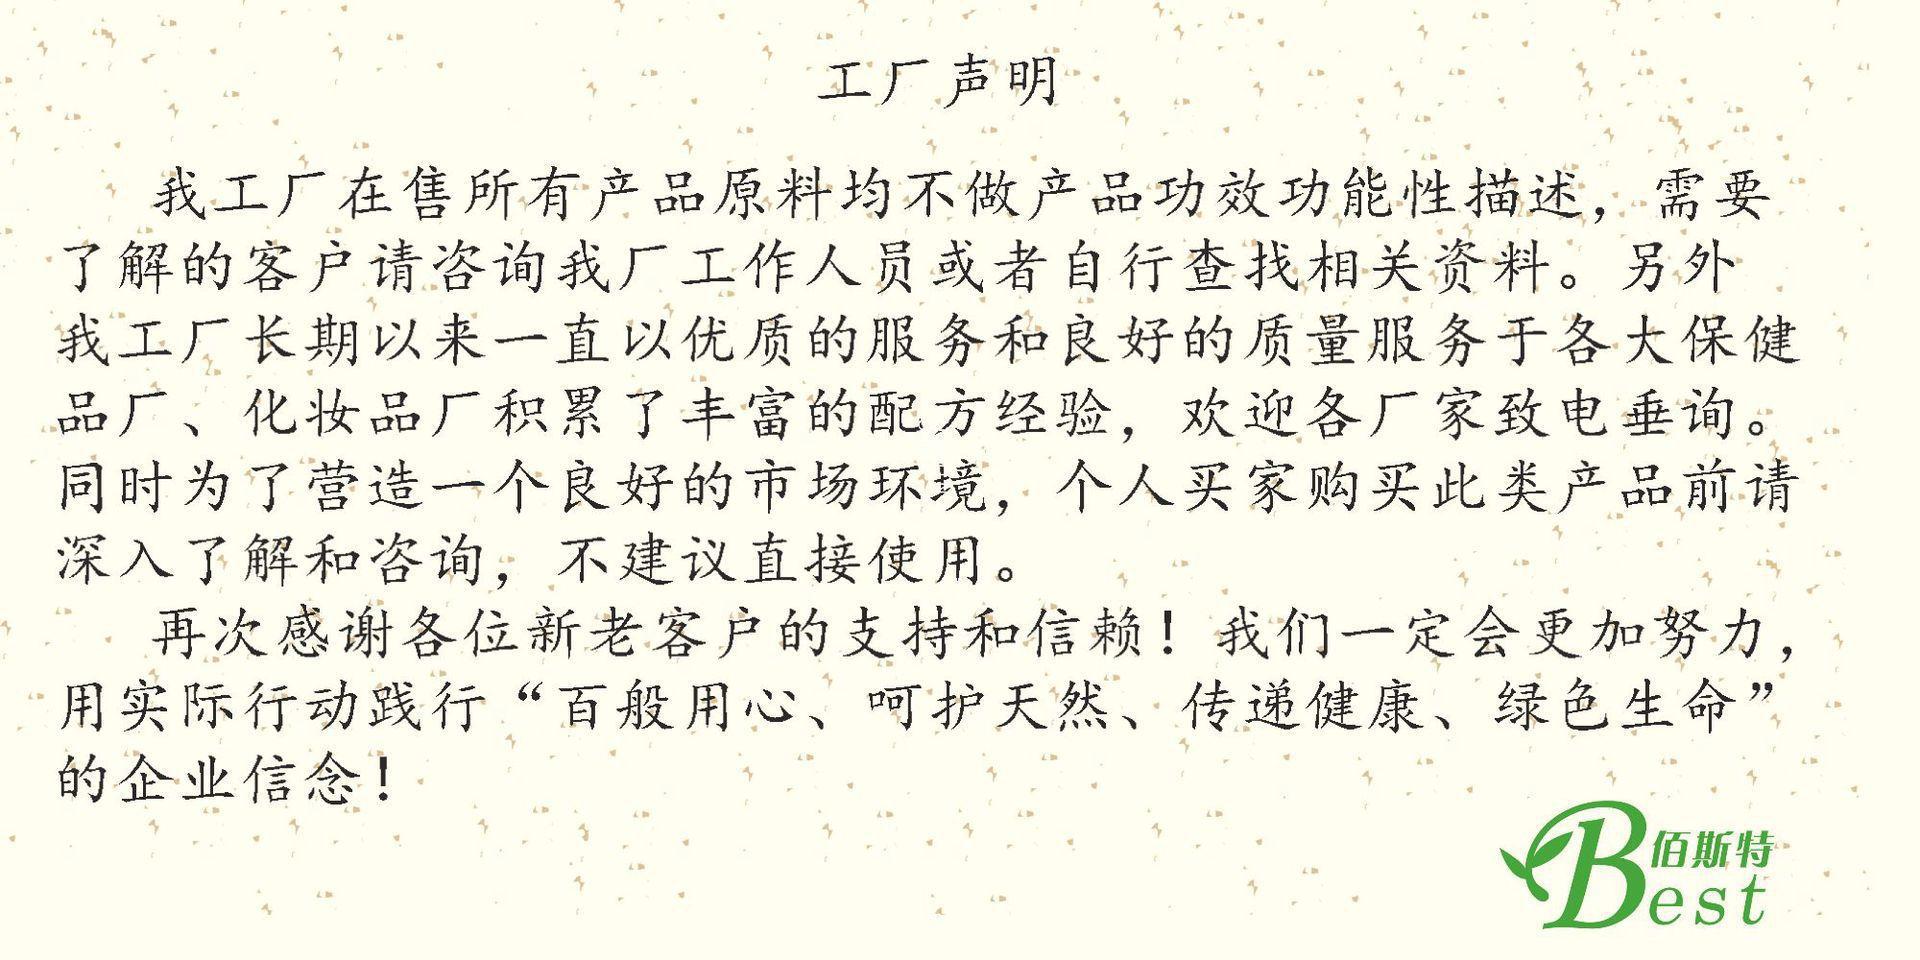 工厂声明
我工厂在售所有产品原料均不做产品功效功能性描述，需要
了解的客户请咨询我厂工作人员或者自行查找相关资料。另外
我工厂长期以来一直以优质的服务和良好的质量服务于各大保健
品厂、化妆品厂积累了丰富的配方经验，欢迎各厂家致电垂询。
同时为了营造一个良好的市场环境，个人买家购买此类产品前请
深入了解和咨询，不建议直接使用。
再次感谢各位新老客户的支持和信赖！我们一定会更加努力，
用实际行动践行“百般用心、呵护天然、传递健康、绿色生命”
的企业信念！
佰斯特
Best